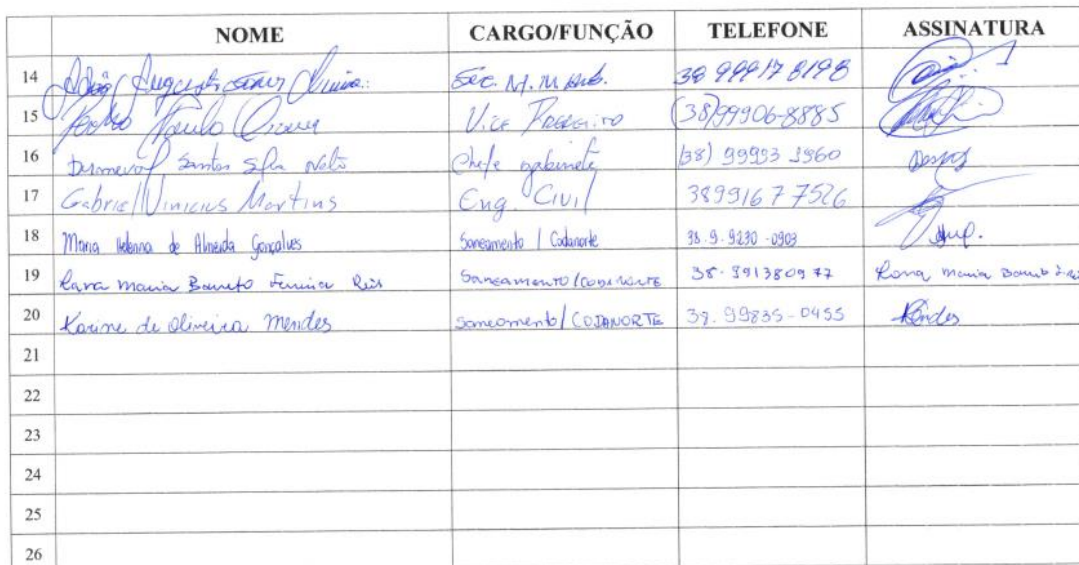 NOME CARGO/FUNÇÃO TELEFONE ASSINATURA
14 Adão Augusto Sec. M. M Amb. 38 99917 8198
15 Pedro Paulo Vice Prefeito (38)99906-8885
16 Dermeval Santos Silva Neto Chefe gabinete (38) 99993 1960
17 Gabriel Vinicius Martins Eng. Civil 38 99167 7526
18 Maria Helenna de Almeida Gonçalves Saneamento / Codanorte 38.9.9230-0903
19 Maria Barreto Ferreira Reis Saneamento/CODANORTE 38.991380977 Maria
20 Karine de Oliveira Mendes Saneamento/CODANORTE 38.99835-0455 Mendes
21
22
23
24
25
26